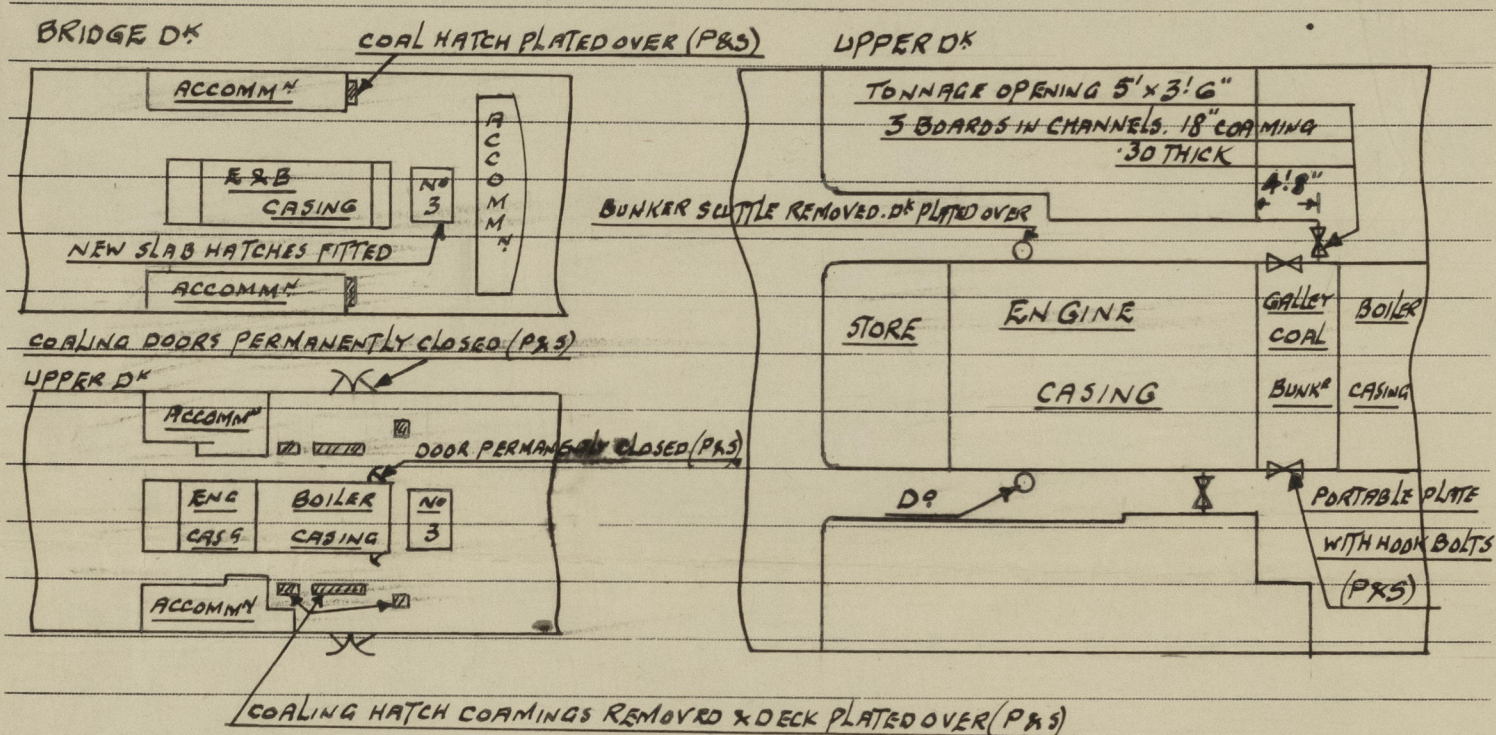 BRIDGE DK
COAL HATCH PLATED OVER (P&S)
ACCOMMN
E & B
CASING
No
3
ACCOMMN
NEW SLAB HATCHES FITTED
ACCOMMN
COALING DOORS PERMANENTLY CLOSED (P&S)
UPPER DK
ACCOMMN
DOOR PERMANENTLY CLOSED (P&S)
ENG
CASG
BOILER
CASING
No
3
ACCOMMN
COALING HATCH COAMINGS REMOVED & DECK PLATED OVER (P&S)
UPPER DK
TONNAGE OPENING 5' x 3'.6"
3 BOARDS IN CHANNELS. 18" COAMING
.30 THICK
4'.8"
BUNKER SCUTTLE REMOVED. DK PLATED OVER
STORE
ENGINE
CASING
GALLEY
COAL
BUNKR
BOILER
CASING
Do
PORTABLE PLATE
WITH HOOK BOLTS
(P&S)